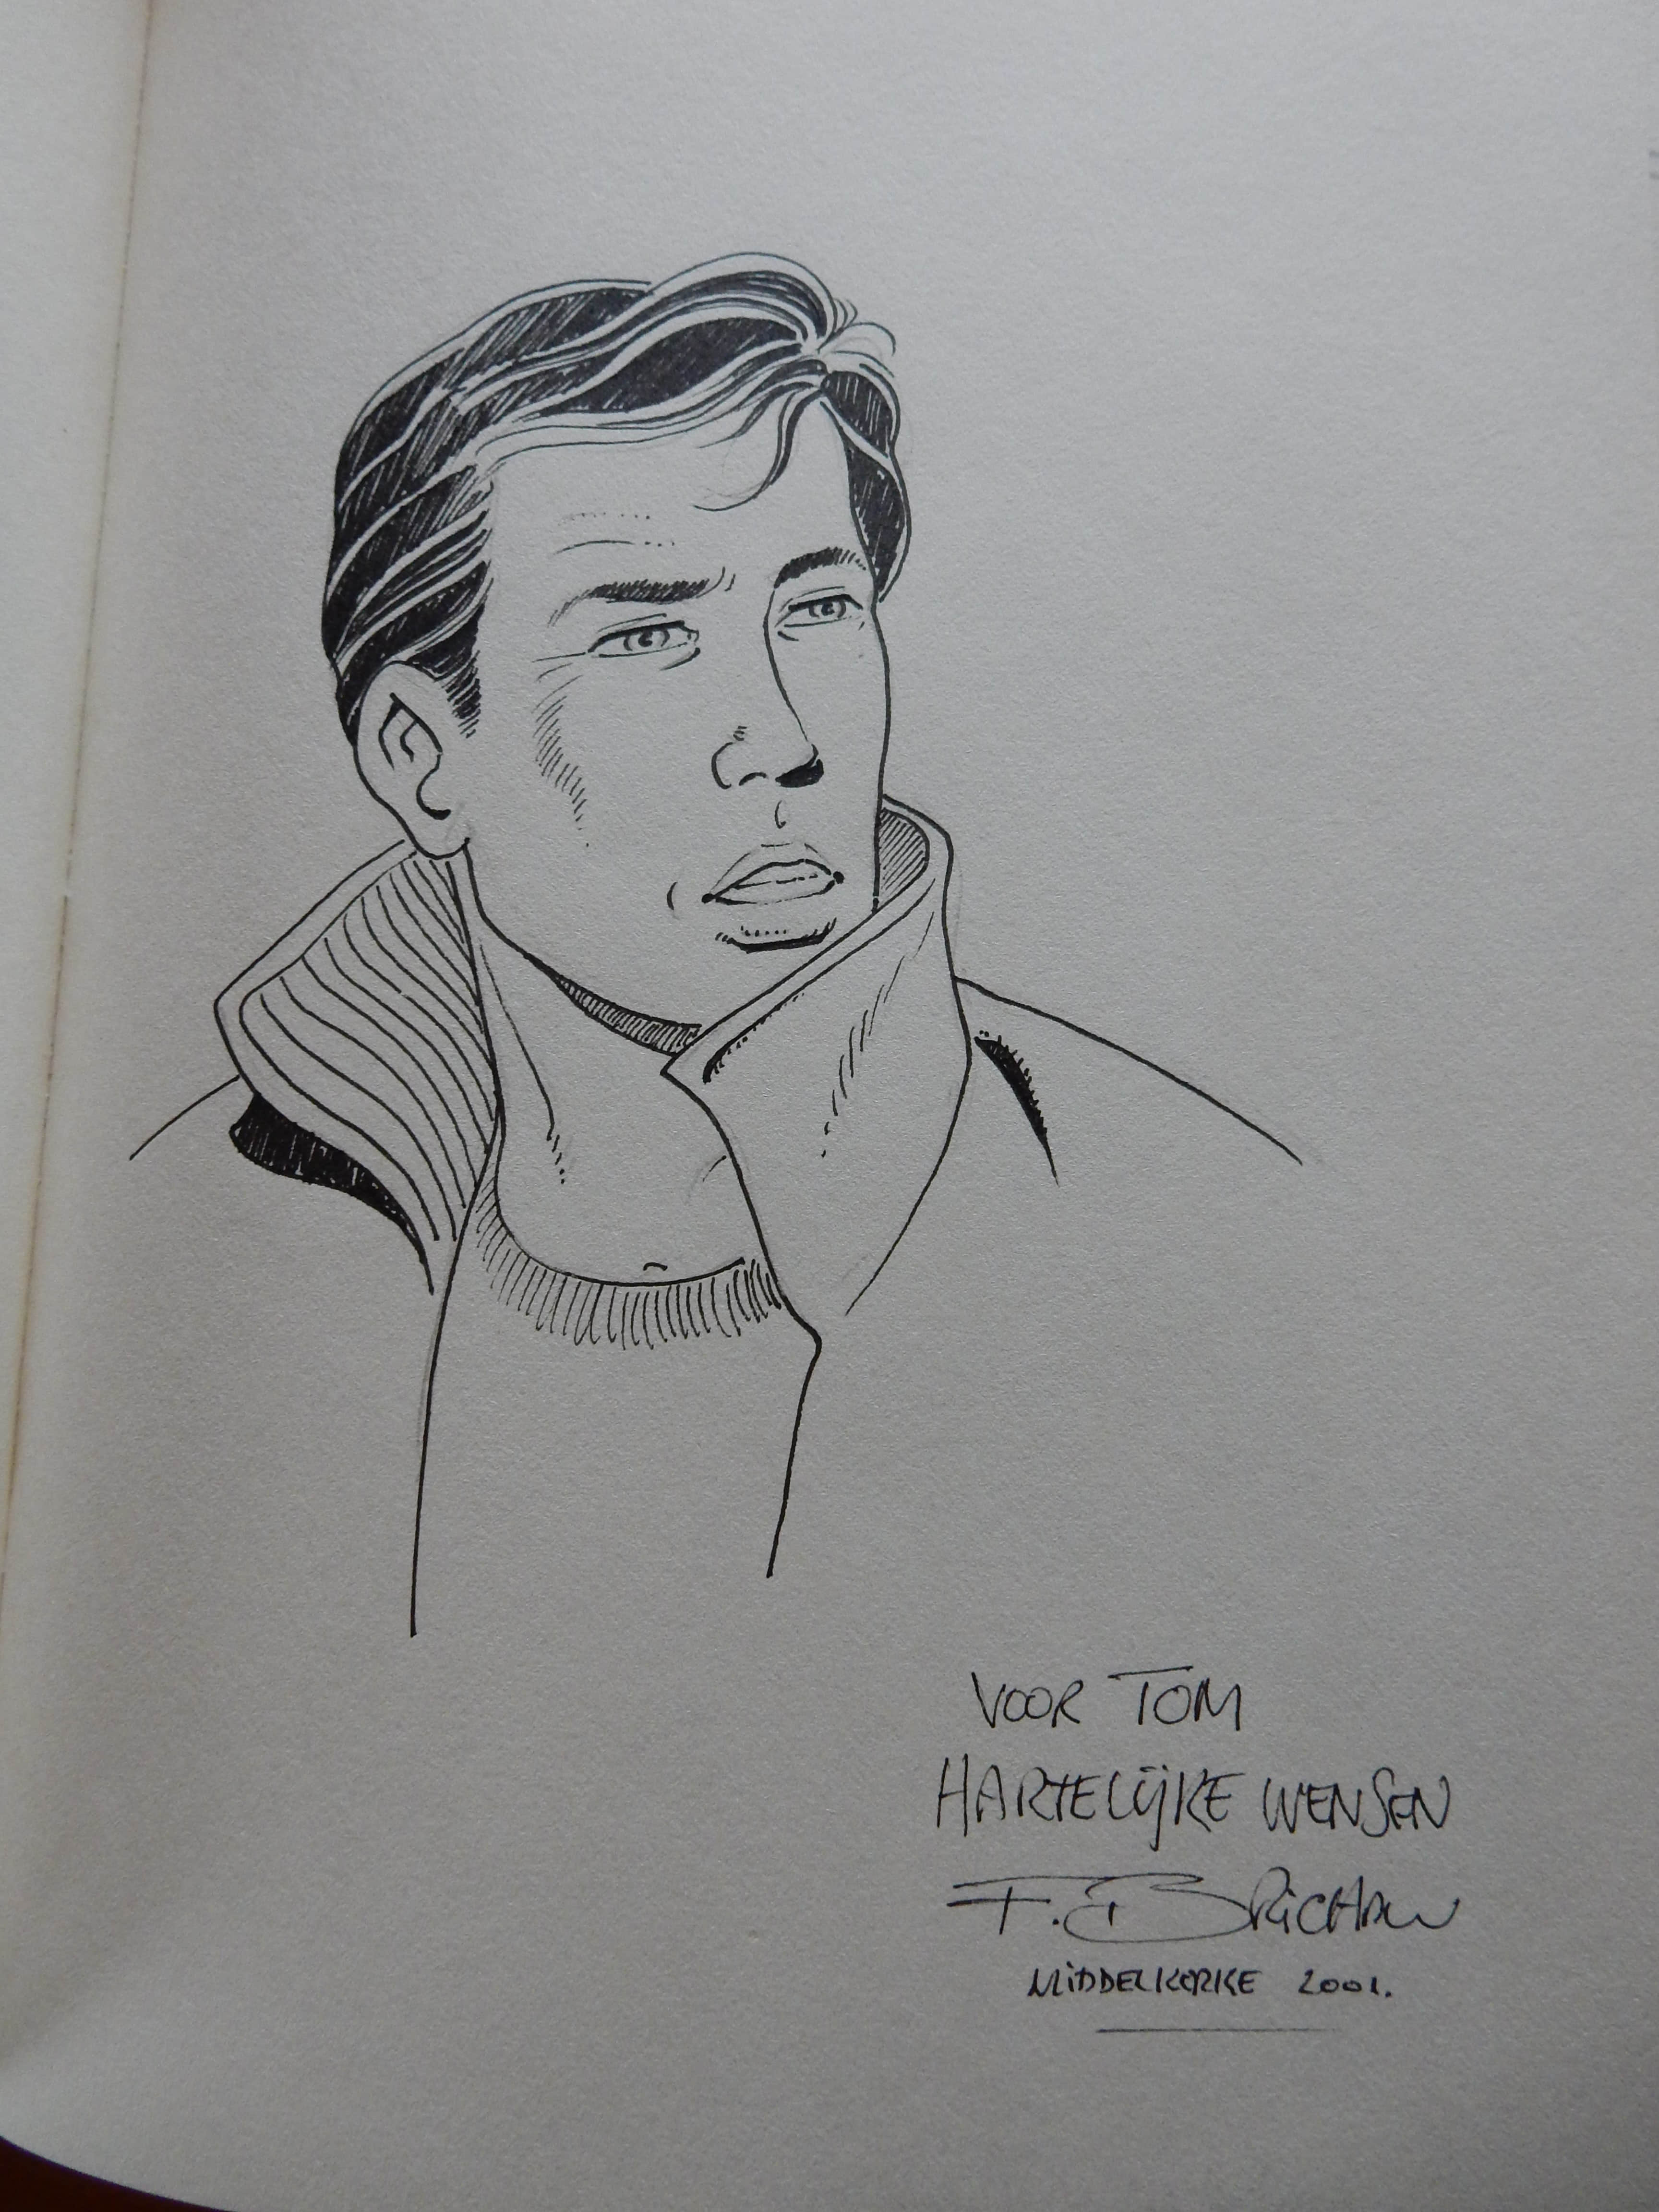 VOOR TOM
HARTELIJKE WENSEN
F. BRICHAU
MIDDELKERKE 2001.